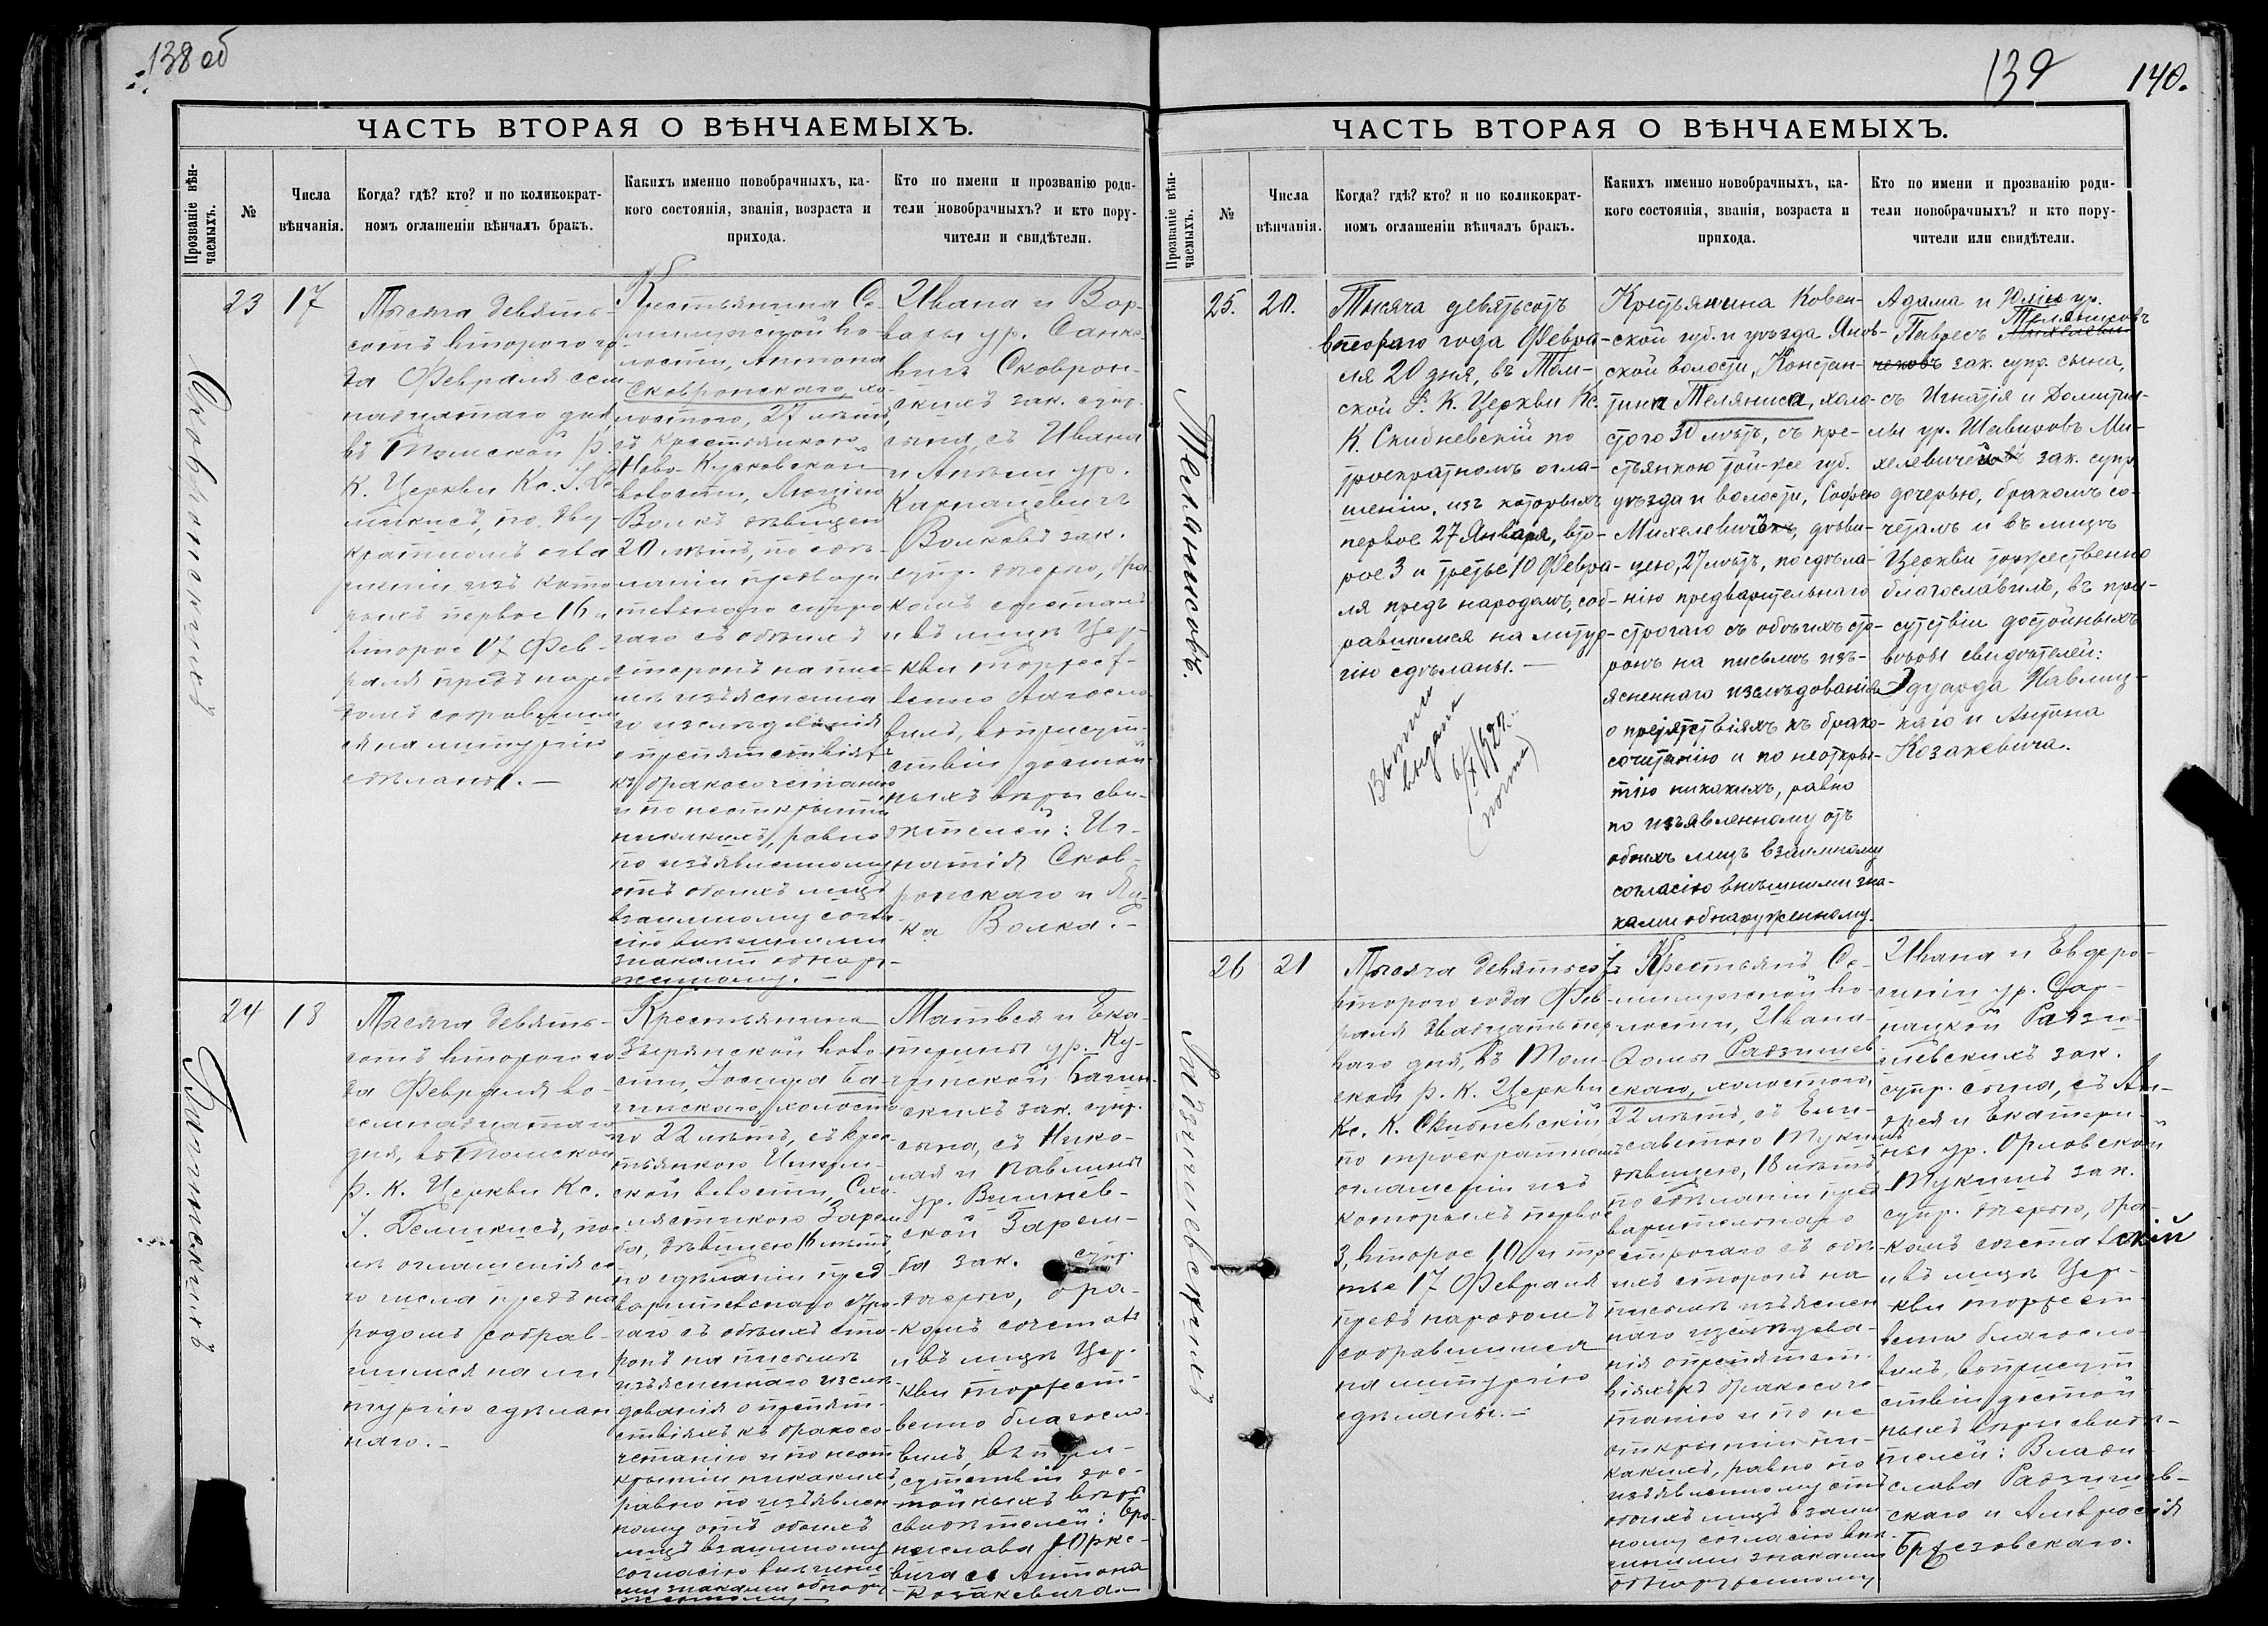 138 об
ЧАСТЬ ВТОРАЯ О ВѢНЧАЕМЫХЪ.
Прозваніе вѣн-
чаемыхъ.
№
Числа
вѣнчанія.
Когда? гдѣ? кто? и по коликократ-
номъ оглашеніи вѣнчалъ бракъ.
Какихъ именно новобрачныхъ, ка-
кого состоянія, званія, возраста и
прихода.
Кто по имени и прозванію роди-
тели новобрачныхъ? и кто пору-
чители и свидѣтели.
Сковронскихъ
23
17
Тысяча девять-
сотъ второго го
да Февраля сем
надцатаго дня,
въ Томской Р.
К. Церкви Кс. І. Де
микисъ, по дву
кратномъ огла
шеніи изъ кото
рыхъ первое 16 и
второе 17 Фев-
раля предъ наро
домъ собравшим
ся на литургію
сдѣланы.—
Крестьянина Се
милужной во-
лости, Антона
Сковронскаго, хо
лостого, 27 лѣтъ,
съ крестьянкою
Ново-Кусковской
волости, Люціею
Волкъ дѣвицею
20 лѣтъ, по сдѣ-
ланіи предвари
тельнаго стро
гаго съ обѣихъ
сторонъ на пис
мѣ изъясненна
го изслѣдованія
о препятствіях
къ бракосочетанію
и по неоткрытію
никакихъ, равно
по изъявленному
отъ обоихъ лицъ
взаимному согла
сію внѣшними
знаками обнару-
женному.—
Ивана и Вар-
вары ур. Санке
вичъ Сковрон-
скихъ зак. супр.
сына, съ Ивана
и Анели ур.
Карпацевичъ
Волковъ зак.
супр. дочерью, бра
комъ сочеталъ
и въ лицѣ Цер-
кви торжест-
венно благосло
вилъ, въ присут-
ствіи достой-
ныхъ вѣры сви-
дѣтелей: Иг-
натія Сков-
ронскаго и Яц-
ка Волка.—
Багинскихъ
24
18
Тысяча девять-
сотъ второго го
да Февраля во-
семнадцатаго
дня, въ Томской
Р. К. Церкви Кс.
І. Демикисъ, пос
лѣ оглашенія се
го числа предъ на
родомъ собрав-
шимся на ли
тургію сдѣлан
наго.—
Крестьянина
Зырянской воло
сти, Іосифа Ба-
гинскаго, холосто
го 22 лѣтъ, съ крес
тьянкою Ишим-
ской волости, Схо
ластикою Зарем
ба, дѣвицею 16 лѣтъ,
по сдѣланіи пред
варительнаго стро
гаго съ обѣихъ сто
ронъ на письмѣ
изъясненнаго изслѣ
дованія о препят-
ствіяхъ къ бракосо-
четанію и по неот
крытіи никакихъ,
равно по изъявлен
ному отъ обоихъ
лицъ взаимному
согласію внѣшни
ми знаками обнару
женному—
Матвея и Ека-
терины ур. Ку-
чинской Багин-
скихъ зак. супр.
сына, съ Нико-
лая и Павлины
ур. Вишнев-
ской Зарем-
ба зак. супр.
дочерью, бра-
комъ сочеталъ
и въ лицѣ Цер-
кви торжест-
венно благосло-
вилъ, въ при-
сутствіи дос-
тойныхъ вѣры
свидѣтелей: Бро-
нислава Юрке-
вича и Антона
Козакевича.—
139
140.
ЧАСТЬ ВТОРАЯ О ВѢНЧАЕМЫХЪ.
Прозваніе вѣн-
чаемыхъ.
№
Числа
вѣнчанія.
Когда? гдѣ? кто? и по коликократ-
номъ оглашеніи вѣнчалъ бракъ.
Какихъ именно новобрачныхъ, ка-
кого состоянія, званія, возраста и
прихода.
Кто по имени и прозванію роди-
тели новобрачныхъ? и кто пору-
чители или свидѣтели.
Телянисовъ.
25.
20.
Тысяча девятьсотъ
второго года Февра-
ля 20 дня, въ Том-
ской Р. К. Церкви Кс.
К. Скибневскій по
троекратномъ огла-
шеніи, изъ которыхъ
первое 27 Января, вто-
рое 3 и третье 10 Февра-
ля предъ народомъ, соб-
равшимся на литур-
гію сдѣланы.—
Выпись
выдана
6/X 1929 г.
(почта)
Крестьянина Ковен-
ской губ. и уѣзда Янов-
ской волости, Констан-
тина Теляниса, холо-
стого 30 лѣтъ, съ кре-
стьянкою той-же губ.
уѣзда и волости, Софіею
Михелевичъ, дѣви-
цею, 27 лѣтъ, по сдѣла-
нію предварительнаго
строгаго съ обѣихъ сто-
ронъ на письмѣ изъ-
ясненнаго изслѣдованія
о препятствіяхъ къ брако-
сочетанію и по неоткры-
тію никакихъ, равно
по изъявленному отъ
обоихъ лицъ взаимному
согласію внѣшними зна-
ками обнаруженному.
Адама и Юліи ур.
Паврезъ Телянисовъ
зак. супр. сына,
съ Игнатія и Домицел-
лы ур. Шавиновъ Ми-
хелевичей зак. супр.
дочерью, бракомъ со-
четалъ и въ лицѣ
Церкви торжественно
благословилъ, въ при-
сутствіи достойныхъ
вѣры свидѣтелей:
Эдуарда Павлиц-
каго и Антона
Козакевича.
Радзишевскихъ
26
21
Тысяча девятьсотъ
второго года Фев-
раля двадцать пер
ваго дня, въ Том-
ской Р. К. Церкви
Кс. К. Скибневскій
по троекратномъ
оглашеніи изъ
которыхъ первое
3, второе 10 и тре
тье 17 Февраля
предъ народомъ
собравшимся
на литургію
сдѣланы.—
Крестьянъ Се-
милужной во-
лости, Ивана-
Фомы Радзишев
скаго, холостого,
22 лѣтъ, съ Ели-
саветою Мукишъ
дѣвицею, 18 лѣтъ
по сдѣланіи пред
варительнаго
строгаго съ обѣ-
ихъ сторонъ на
письмѣ изъяснен
наго изслѣдова-
нія о препятст-
віяхъ къ бракосоче
танію и по не
открытіи ни-
какихъ, равно по
изъявленному отъ
обоихъ лицъ взаим
ному согласію внѣ-
шними знаками
обнаруженному
Ивана и Евфро-
синіи ур. Сар-
нацкой Радзи-
шевскихъ зак.
супр. сына, съ Ан-
дрея и Екатери-
ны ур. Орловской
Мукишъ зак.
супр. дочерью, бра-
комъ сочеталъ
и въ лицѣ Цер-
кви торжест-
венно благосло-
вилъ, въ присут
ствіи достой-
ныхъ вѣры свидѣ-
телей: Влади-
слава Радзишев-
скаго и Амвросія
Брезовскаго.